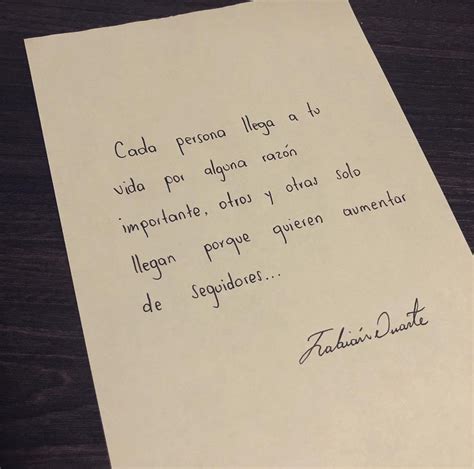 Cada persona llega a tu
vida por alguna razón
importante, otros y otras solo
llegan porque quieren aumentar
de seguidores...
Fabián Duarte